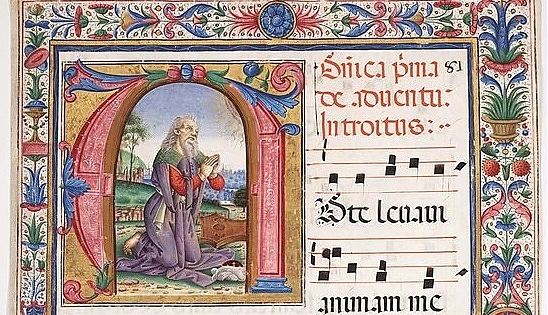 Dñica p̃ma 81
de aduentu.
Introitus:
AD te leuaui
animam me